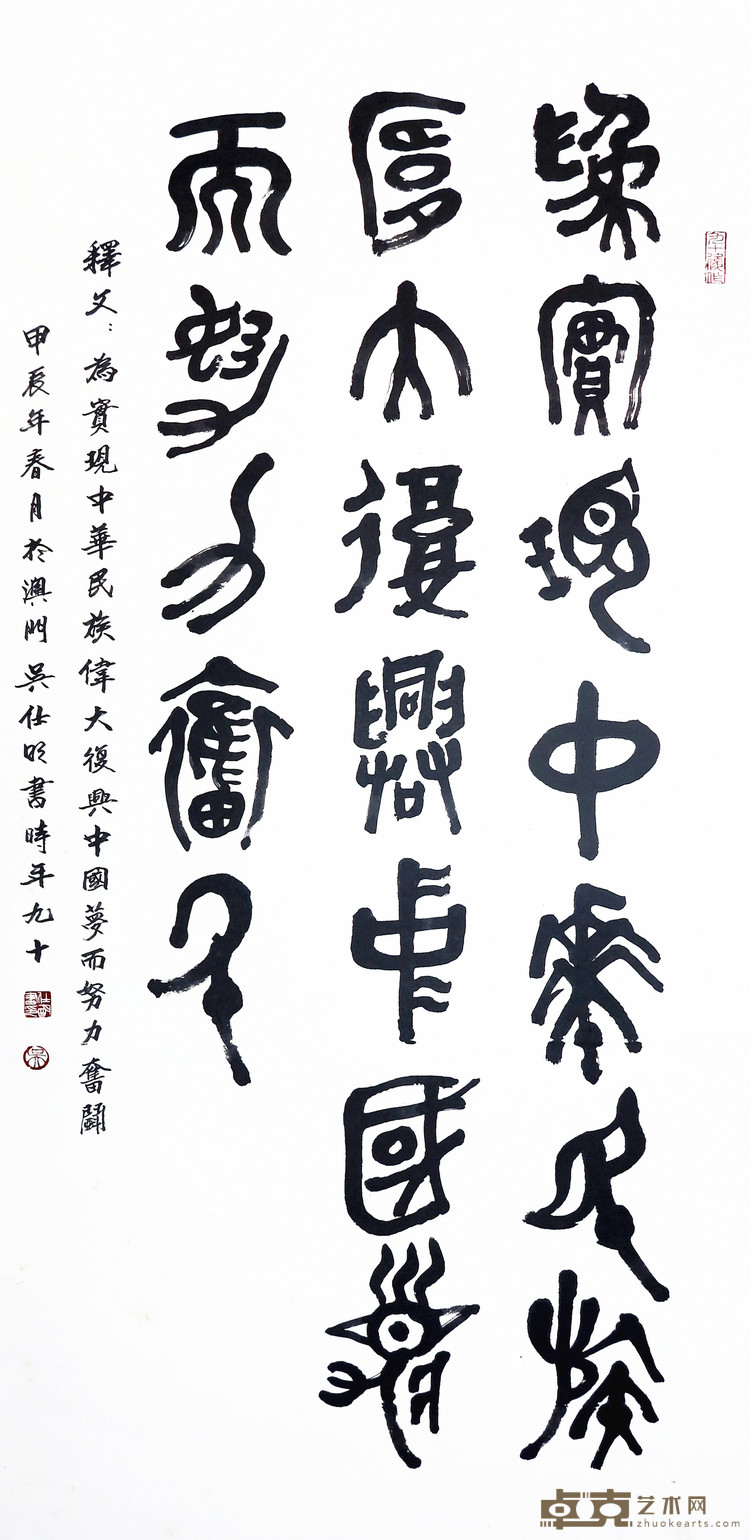 為實現中華民族
偉大復興中國夢
而努力奮斗
釋文：為實現中華民族偉大復興中國夢而努力奮鬭
甲辰年春月於澳門吳仕明書時年九十
吳
卓克艺术网
zhuokearts.com